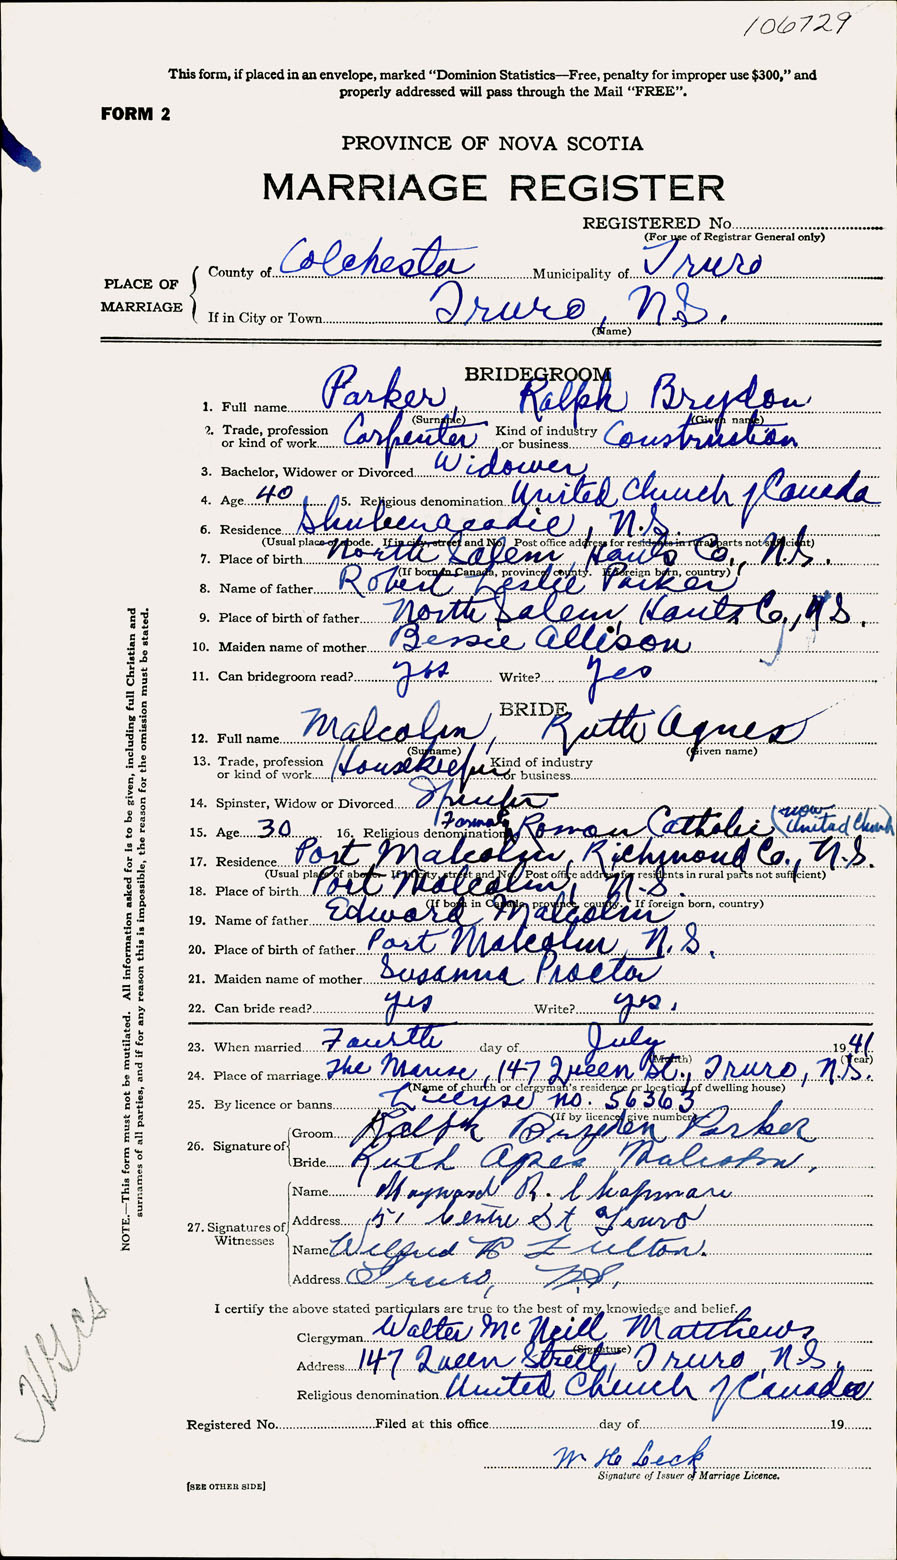 106729
This form, if placed in an envelope, marked "Dominion Statistics—Free, penalty for improper use $300," and
properly addressed will pass through the Mail "FREE".
FORM 2
PROVINCE OF NOVA SCOTIA
MARRIAGE REGISTER
REGISTERED No.
(For use of Registrar General only)
PLACE OF MARRIAGE
County of Colchester Municipality of Truro
If in City or Town Truro, N.S.
(Name)
BRIDEGROOM
1. Full name Parker, Ralph Brydon
(Surname) (Given name)
2. Trade, profession or kind of work Carpenter Kind of industry or business Construction
3. Bachelor, Widower or Divorced Widower
4. Age 40 5. Religious denomination United Church of Canada
6. Residence Shubenacadie, N.S.
(Usual place of abode. If in city, street and No. Post office address for residents in rural parts not sufficient)
7. Place of birth North Salem, Hants Co., N.S.
(If born in Canada, province, county. If foreign born, country)
8. Name of father Robert Leslie Parker
9. Place of birth of father North Salem, Hants Co., N.S.
10. Maiden name of mother Bessie Allison
11. Can bridegroom read? yes Write? Yes
BRIDE
12. Full name Malcolm, Ruth Agnes
(Surname) (Given name)
13. Trade, profession or kind of work Housekeeper Kind of industry or business
14. Spinster, Widow or Divorced Spinster
15. Age 30 16. Religious denomination Formerly Roman Catholic (now United Church
17. Residence Port Malcolm, Richmond Co., N.S.
(Usual place of abode. If in city, street and No. Post office address for residents in rural parts not sufficient)
18. Place of birth Port Malcolm, N.S.
(If born in Canada, province, county. If foreign born, country)
19. Name of father Edward Malcolm
20. Place of birth of father Port Malcolm, N.S.
21. Maiden name of mother Susanna Proctor
22. Can bride read? yes Write? yes.
23. When married Fourth day of July 1941
(Month) (Year)
24. Place of marriage The Manse, 147 Queen St., Truro, N.S.
(Name of church or clergyman's residence or location of dwelling house)
25. By licence or banns License no. 56363
(If by licence give number)
26. Signature of
Groom Ralph Brydon Parker
Bride Ruth Agnes Malcolm,
27. Signatures of Witnesses
Name Maynard R. Chapman
Address 51 Centre St Truro
Name Wilfred H Fulton.
Address Truro, N.S.
I certify the above stated particulars are true to the best of my knowledge and belief.
Clergyman Walter McNeill Matthews
(Signature)
Address 147 Queen Street, Truro, N.S.
Religious denomination United Church of Canada
Registered No. Filed at this office day of 19
W H Leck
Signature of Issuer of Marriage Licence.
[SEE OTHER SIDE]
NOTE.—This form must not be mutilated. All information asked for is to be given, including full Christian and
surnames of all parties, and if for any reason this is impossible, the reason for the omission must be stated.